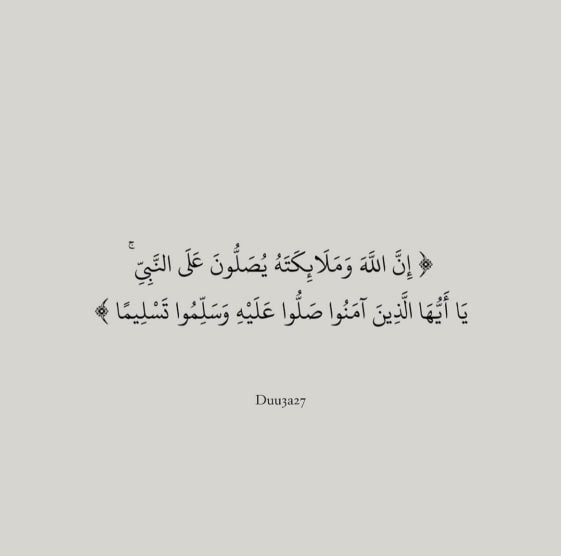 ﴿ إِنَّ اللَّهَ وَمَلَائِكَتَهُ يُصَلُّونَ عَلَى النَّبِيِّ ۚ
يَا أَيُّهَا الَّذِينَ آمَنُوا صَلُّوا عَلَيْهِ وَسَلِّمُوا تَسْلِيمًا ﴾
Duu3a27